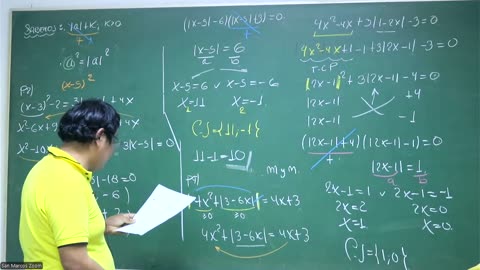 Sabemos: |a|+K, K>0
a² = |a|²
(x-5)²
P3)
(x-3)²-2=
+4x
x²-6x+9
+4x
x²-10
3|x-5|=0
|-18=0
-6)
(|x-5|-6)(|x-5|+3)=0
+
|x-5| = 6
a b
x-5=6 ∨ x-5=-6
x=11 x=-1.
C.S={11,-1}
11-1=10
m y m.
P4)
|4x²+|3-6x||=4x+3
≥0 ≥0
4x²+|3-6x|=4x+3
4x²-4x+3|1-2x|-3=0
4x²-4x+1-1+3|2x-1|-3=0
T.C.P
|2x-1|²+3|2x-1|-4=0
|2x-1| +4
|2x-1| -1
(|2x-1|+4)(|2x-1|-1)=0
+
|2x-1|=1
a b
2x-1=1 ∨ 2x-1=-1
2x=2 2x=0
x=1. x=0.
C.S={1,0}
San Marcos Zoom